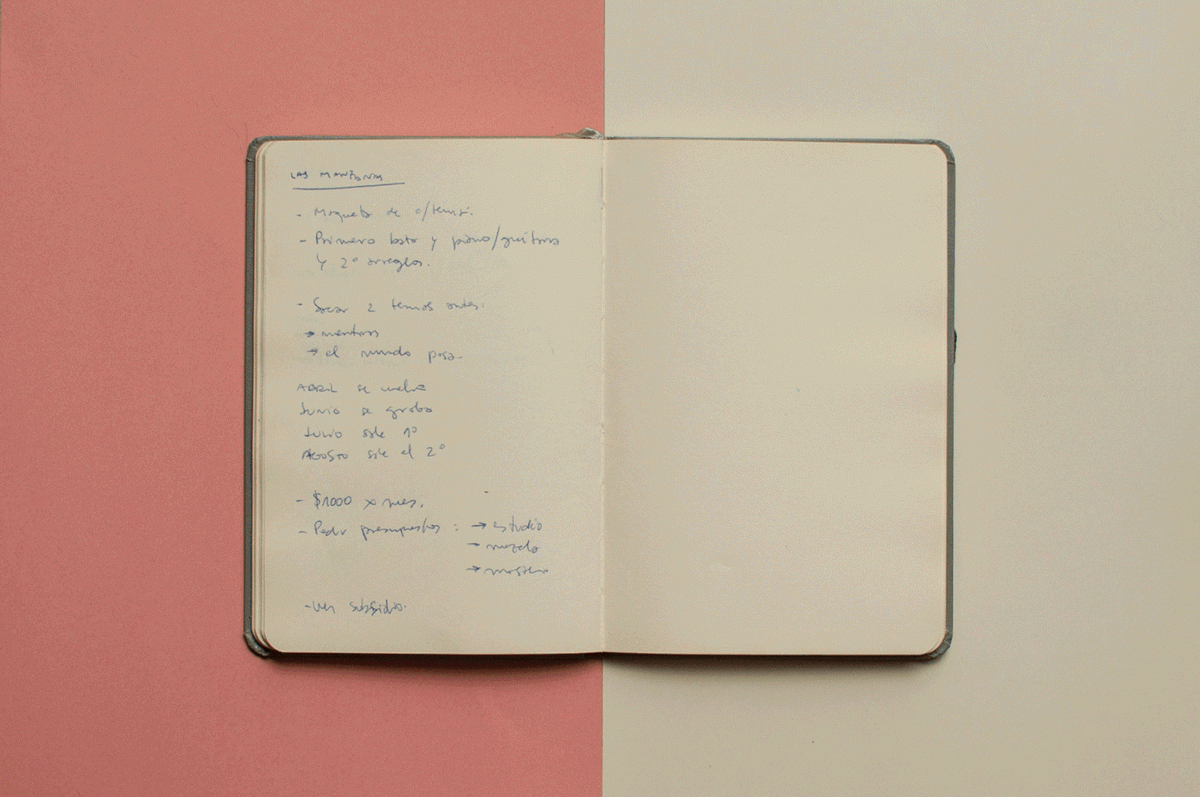 LAS MANZANAS
- Maqueta de c/tema.
- Primero bata y piano/guitarra
y 2º arreglos.
- Sacar 2 temas antes.
→ mentiras
→ el mundo pasa.
ABRIL se
JUNIO se graba
JULIO sale 1º
AGOSTO sale el 2º
- $1000 x mes.
- Pedir presupuestos : → estudio
→ mezcla
→ master
- ver subsidio.